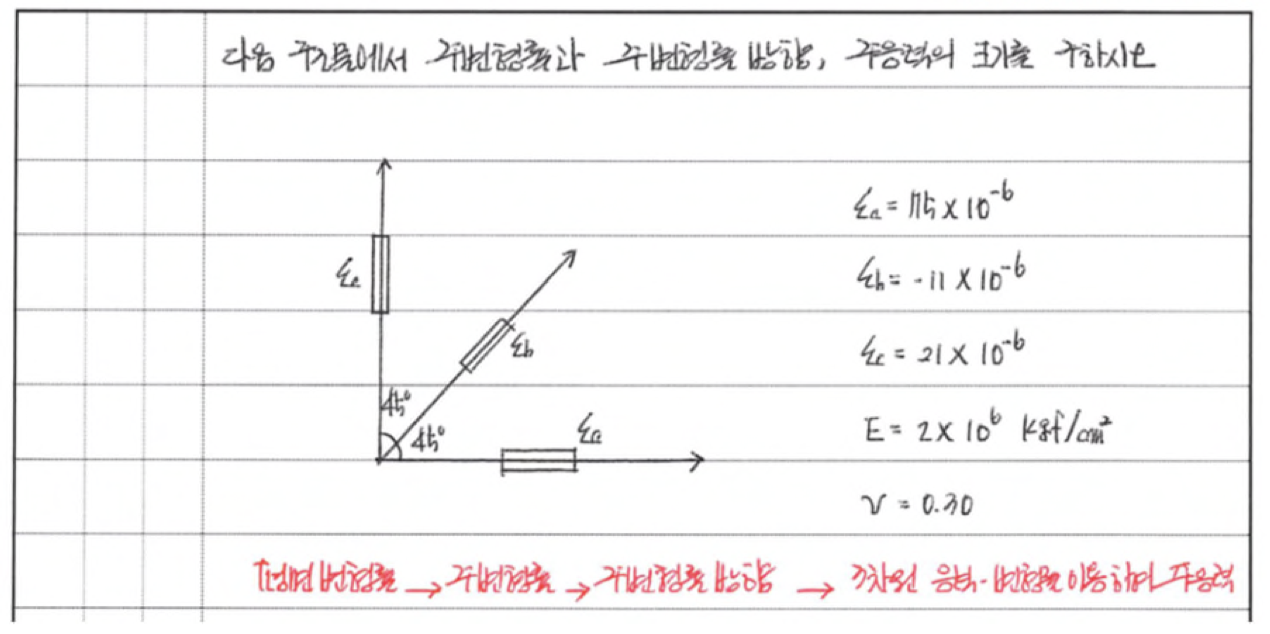 다음 구조물에서 주변형률과 주변형률 방향, 주응력의 크기를 구하시오
εa = 175 X 10⁻⁶
εb = -11 X 10⁻⁶
εc
εb
εc = 21 X 10⁻⁶
45°
45°
εa
E = 2 X 10⁶ kgf/cm²
ν = 0.30
평면변형률 → 주변형률 → 주변형률 방향 → 3차원 응력-변형률 이용하여 주응력